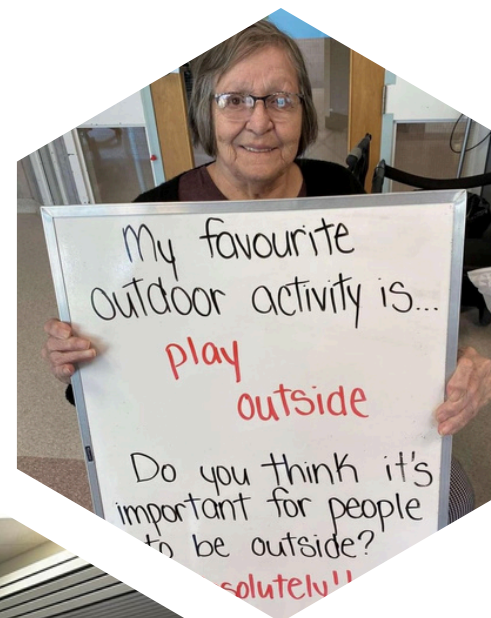 My favourite
outdoor activity is...
play
outside
Do you think it's
important for people
to be outside?
solutely!!